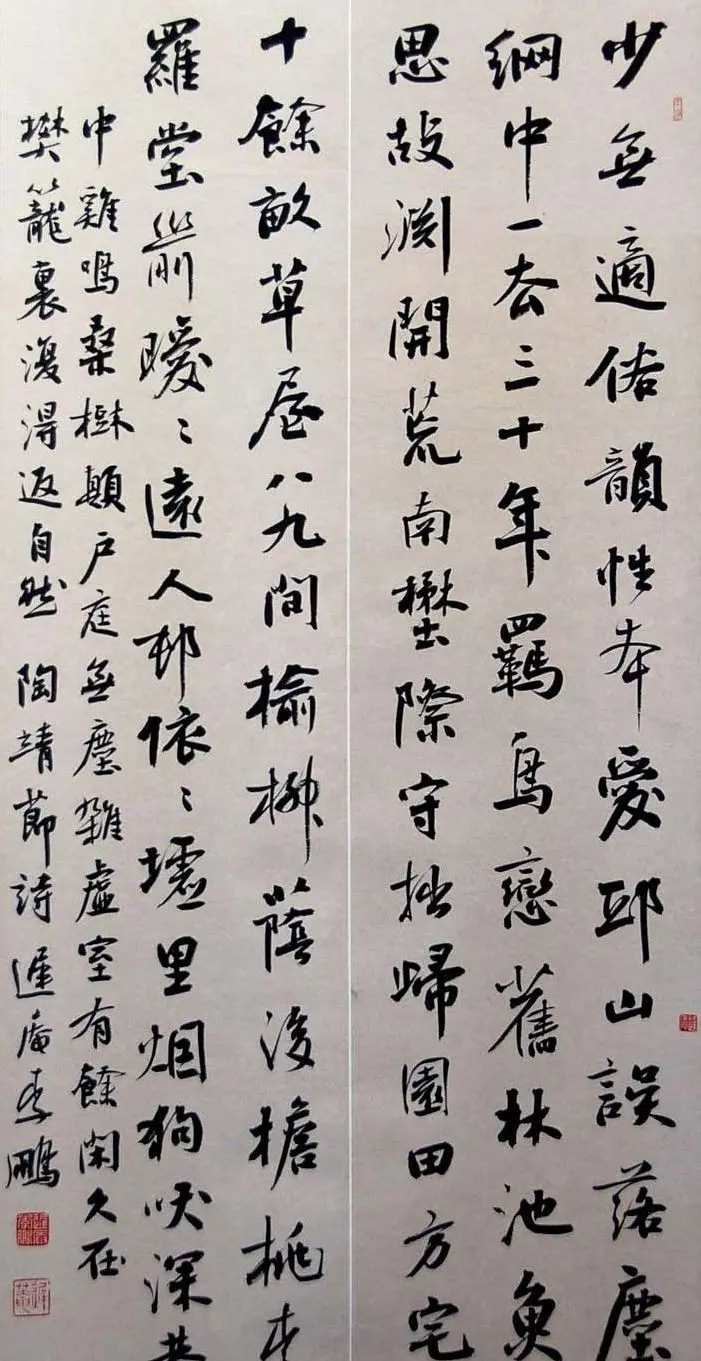 少無適俗韻性本愛邱山誤落塵
網中一去三十年羈鳥戀舊林池魚
思故淵開荒南壄際守拙歸園田方宅
十餘畝草屋八九間榆柳蔭後檐桃李
羅堂前曖〻遠人邨依〻墟里烟狗吠深巷
中雞鳴桑樹顛戶庭無塵雜虛室有餘閑久在
樊籠裏復得返自然 陶靖節詩遲庵李鵬